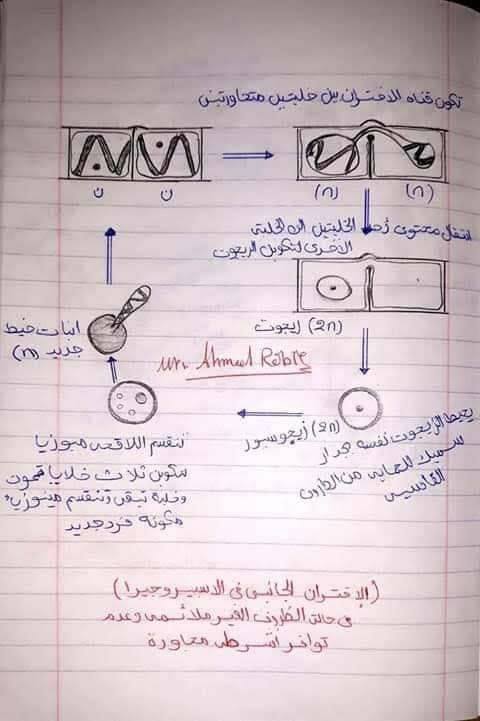 تكون قناه الاقتران بين خليتين متجاورتين
ن
ن
(n)
(n)
انتقل محتوى أحد الخليتين الى الخلية
الأخرى لتكوين الزيجوت
(2n) زيجوت
انبات خيط
جديد (n)
Mr. Ahmed Rabie
(2n) زيجوسبور
يحيط الزيجوت نفسه جدار
سميك للحمايه من الظروف
القاسيه
تنقسم اللاقحه ميوزيا
مكون ثلاث خلايا تموت
وخلية تبقى وتنقسم ميتوزيا
مكونه فرد جديد
(الاقتران الجانبى فى الاسبيروجيرا)
فى حالة الظروف الغير ملائمه وعدم
توافر اشرطه مجاورة